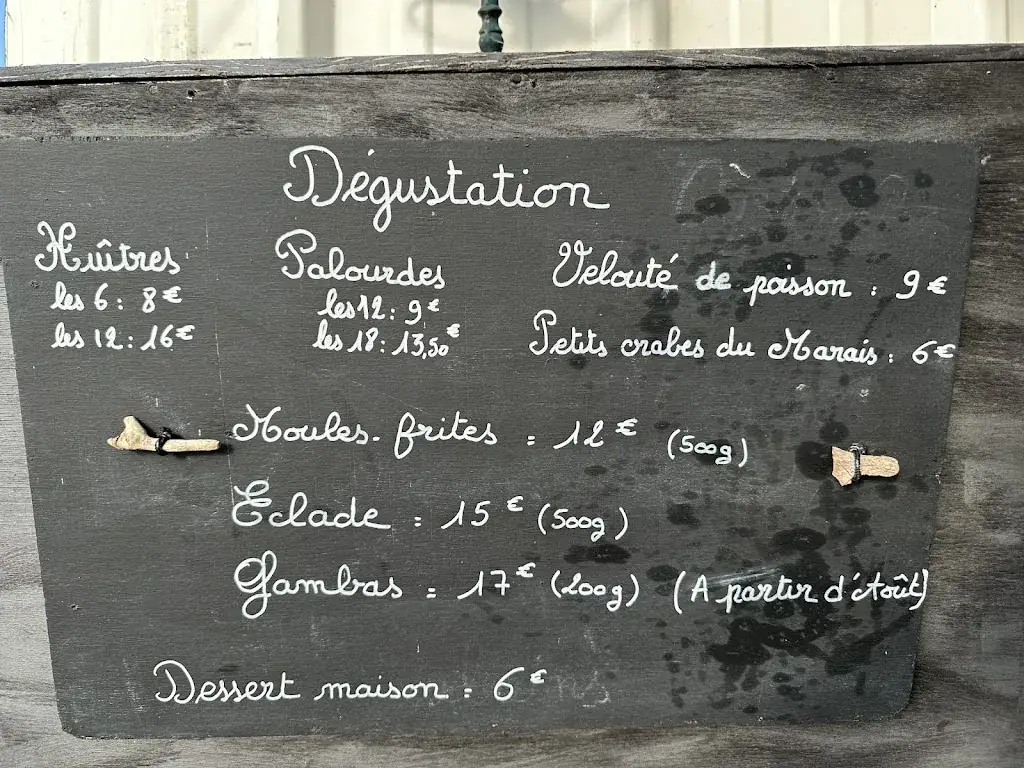 Dégustation
Huîtres
les 6 : 8€
les 12 : 16€
Palourdes
les 12 : 9€
les 18 : 13,50€
Velouté de poisson : 9€
Petits crabes du Marais : 6€
Moules-frites : 12€ (500g)
Eclade : 15€ (500g)
Gambas : 17€ (200g) (A partir d'Août)
Dessert maison : 6€